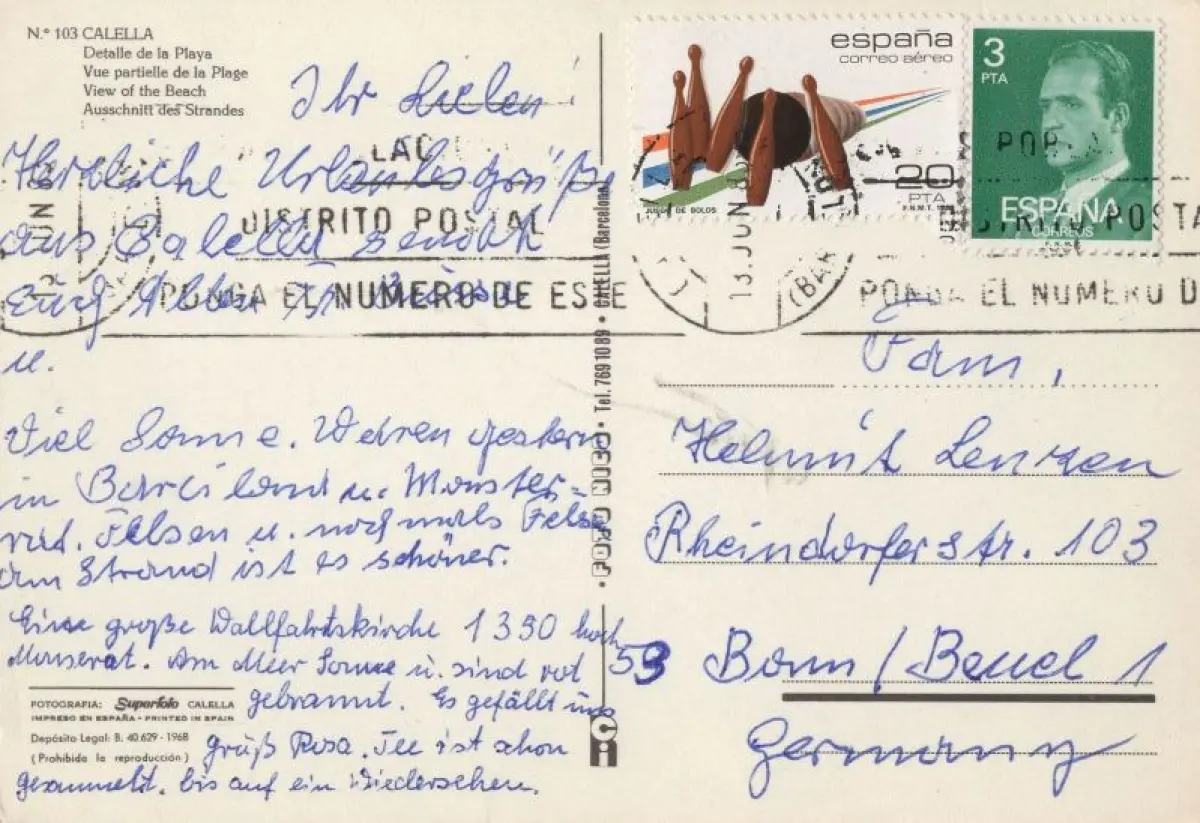 N.° 103 CALELLA
Detalle de la Playa
Vue partielle de la Plage
View of the Beach
Ausschnitt des Strandes
Ihr Lieben!
Herzliche Urlaubsgrüße
aus Calella sendet
Euch
u.
Viel Sonne. Waren gestern
in Barcilona u. Monster-
rat. Felsen u. nochmals Felse
am Strand ist es schöner.
Eine große Wallfahrtskirche 1350 hoch
Monserat. Am Meer Sonne u. sind rot
gebrannt. Es gefällt uns
Gruß Rosa. Tee ist schon
gesammelt. bis auf ein Wiedersehen.
FOTOGRAFIA: Superfoto CALELLA
IMPRESO EN ESPAÑA - PRINTED IN SPAIN
Depósito Legal: B. 40.629 - 1968
(Prohibida la reproducción)
Tel. 7691089 • CALELLA (Barcelona)
españa
correo aéreo
20
PTA
F.N.M.T.
JUEGO DE BOLOS
3
PTA
ESPAÑA
CORREOS
DISTRITO POSTAL
PONGA EL NUMERO DE ESTE
13. JUN
(BAR
POR
DISTRITO POSTA
PONGA EL NUMERO D
Fam,
Helmut Lenzen
Rheindorferstr. 103
53 Bonn/Beuel 1
Germany
ci